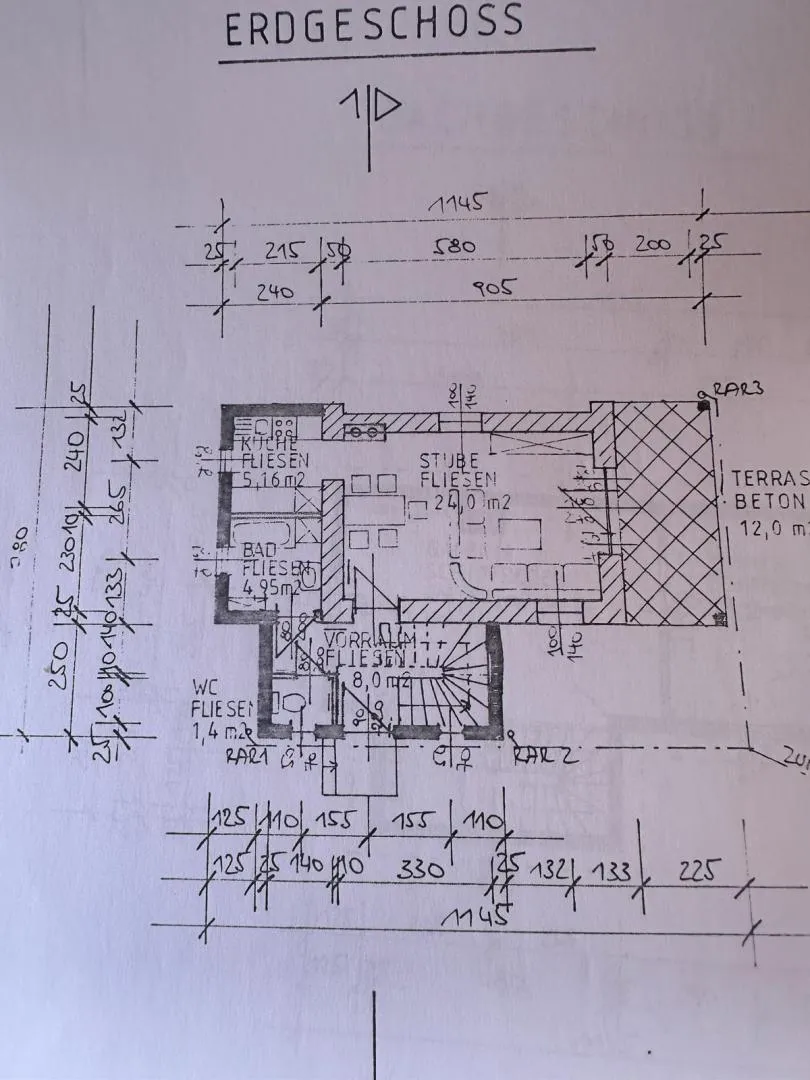 ERDGESCHOSS
1
1145
25 215 50 580 50 200 25
240 905
RAR3
KÜCHE
FLIESEN
5,16 m2
STUBE
FLIESEN
24,0 m2
180
140
TERRAS
BETON
12,0 m
BAD
FLIESEN
4,95m2
VORRAUM
FLIESEN
8,0 m2
100
140
WC
FLIESEN
1,4 m2
RAR1
RAR 2
80
80
90
200
25
240
132
265
230
10
25
133
140
250
10
100
25
125 110 155 155 110
125 25 140 10 330 25 132 133 225
1145